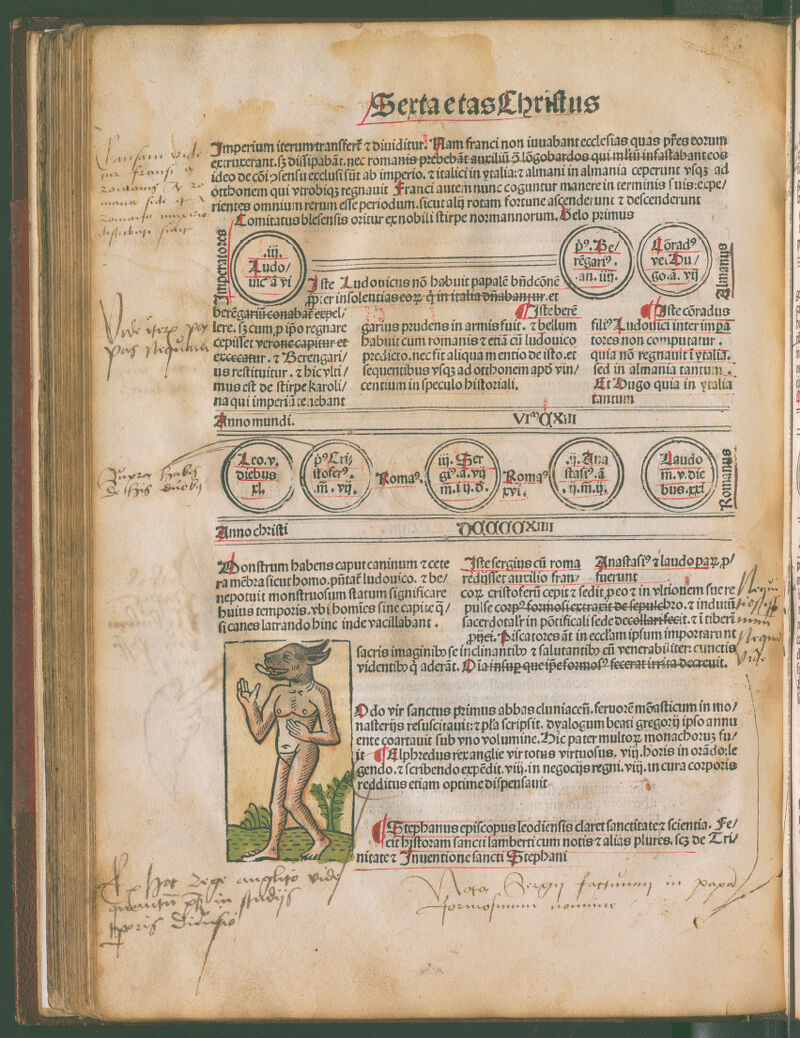 Sexta etas Christus
Imperium iterum transfert᷑ ⁊ diuiditur. Nam franci non iuuabant ecclesias quas p̃res eorum
extruxerant. sꝫ dissipabãt. nec romanis prebebãt auxiliũ ↄ̃ lõgobardos qui mltũ infestabant eos
ideo de cõi ↄ̃sensu exclusi sũt ab imperio. ⁊ italici in ytalia: ⁊ almani in almania ceperunt vsqꝫ ad
otthonem qui vtrobiqꝫ regnauit Franci autem nunc coguntur manere in terminis suis: expe/
rientes omnium rerum esse periodum. sicut alij rotam fortune ascenderunt ⁊ descenderunt
Comitatus blesensis oritur ex nobili stirpe normannorum. Relo primus
Imperatores
.iij.
Ludo/
uic⁹ ã vi
p⁹. Be/
rẽgari⁹.
.an. iiij.
Cõrad⁹
vel Hu/
go. ã. vij
Almanus
Iste Ludouicus nõ habuit papalẽ bñdcõnẽ
ꝓpter insolentias eoꝝ q̃ in italia dñabantur. et
berẽgariũ conabat᷑ expel/
lere. sꝫ cum ꝓ ip̃o regnare
cepisset verone capitur et
excecatur. ⁊ Berengari/
us restituitur. ⁊ hic vlti/
mus est de stirpe karoli/
na qui imperiũ tenebant
Iste berẽ
garius prudens in armis fuit. ⁊ bellum
habuit cum romanis ⁊ etiã cũ ludouico
predicto. nec fit aliqua mentio de isto. et
sequentibus vsqꝫ ad otthonem apð vin/
centium in speculo historiali.
Iste cõradus
fili⁹ Ludouici inter impa
tores non computatur.
quia nõ regnauit ĩ ytalia.
sed in almania tantum.
Et Hugo quia in ytalia
tantum
Anno mundi.
VIᵐCXIII
Leo. v.
diebus
xl.
p⁹ Cri
stofer⁹.
.m̃. vij.
Roma⁹.
iij. Ser
gi⁹. ã. vij
m̃. iij. d.
Roma⁹
xvi.
.ij. Ana
stasi⁹. ã
.ij. m̃. ij.
Laudo
m̃. v. die
bus. xxi
Romanus
Anno christi
DCCCCXIIII
Monstrum habens caput caninum ⁊ cete
ra mẽbra sicut homo. pñtat᷑ ludouico. ⁊ be/
ne potuit monstruosum statum significare
huius temporis. vbi homĩes sine capite q̃/
si canes latrando hinc inde vacillabant.
Iste sergius cũ roma
redijsset auxilio fran/
coꝝ cristoferũ cepit ⁊ sedit
pulse corp⁹ formosi extraxit de sepulchro. ⁊ indutũ
sacerdotalr̃ in põtificali sede decollari fecit. ⁊ ĩ tiberi
ꝓijci. Piscatores aũt in eccl̃am ipsum importarunt
sacris imaginibꝰ se inclinantibꝰ ⁊ salutantibꝰ eũ venerabiliter: cunctis
videntibꝰ q̃ aderãt. Oĩa insuꝑ que ip̃e formos⁹ fecerat irrita decreuit.
Anastasi⁹ ⁊ laudo paꝝ. p/
fuerunt
Odo vir sanctus primus abbas cluniaceñ. feruorẽ mõasticum in mo/
nasterijs resuscitauit: ⁊ pl̃a scripsit. dyalogum beati gregorij ipso annu
ente coartauit sub vno volumine. Hic pater multoꝝ monachoruꝫ fu/
it Alphredus rex anglie vir totus virtuosus. viij. horis in orãdo: le
gendo. ⁊ scribendo expẽdit. viij. in negocijs regni. viij. in cura corporis
redditus etiam optime dispensauit
Stephanus episcopus leodiensis claret sanctitate ⁊ scientia. Fe/
cit historam sancti lamberti cum notis ⁊ alias plures. scꝫ de Tri/
nitate ⁊ Inuentione sancti Stephani
Nota Sergij factum in papa
formosum nomine